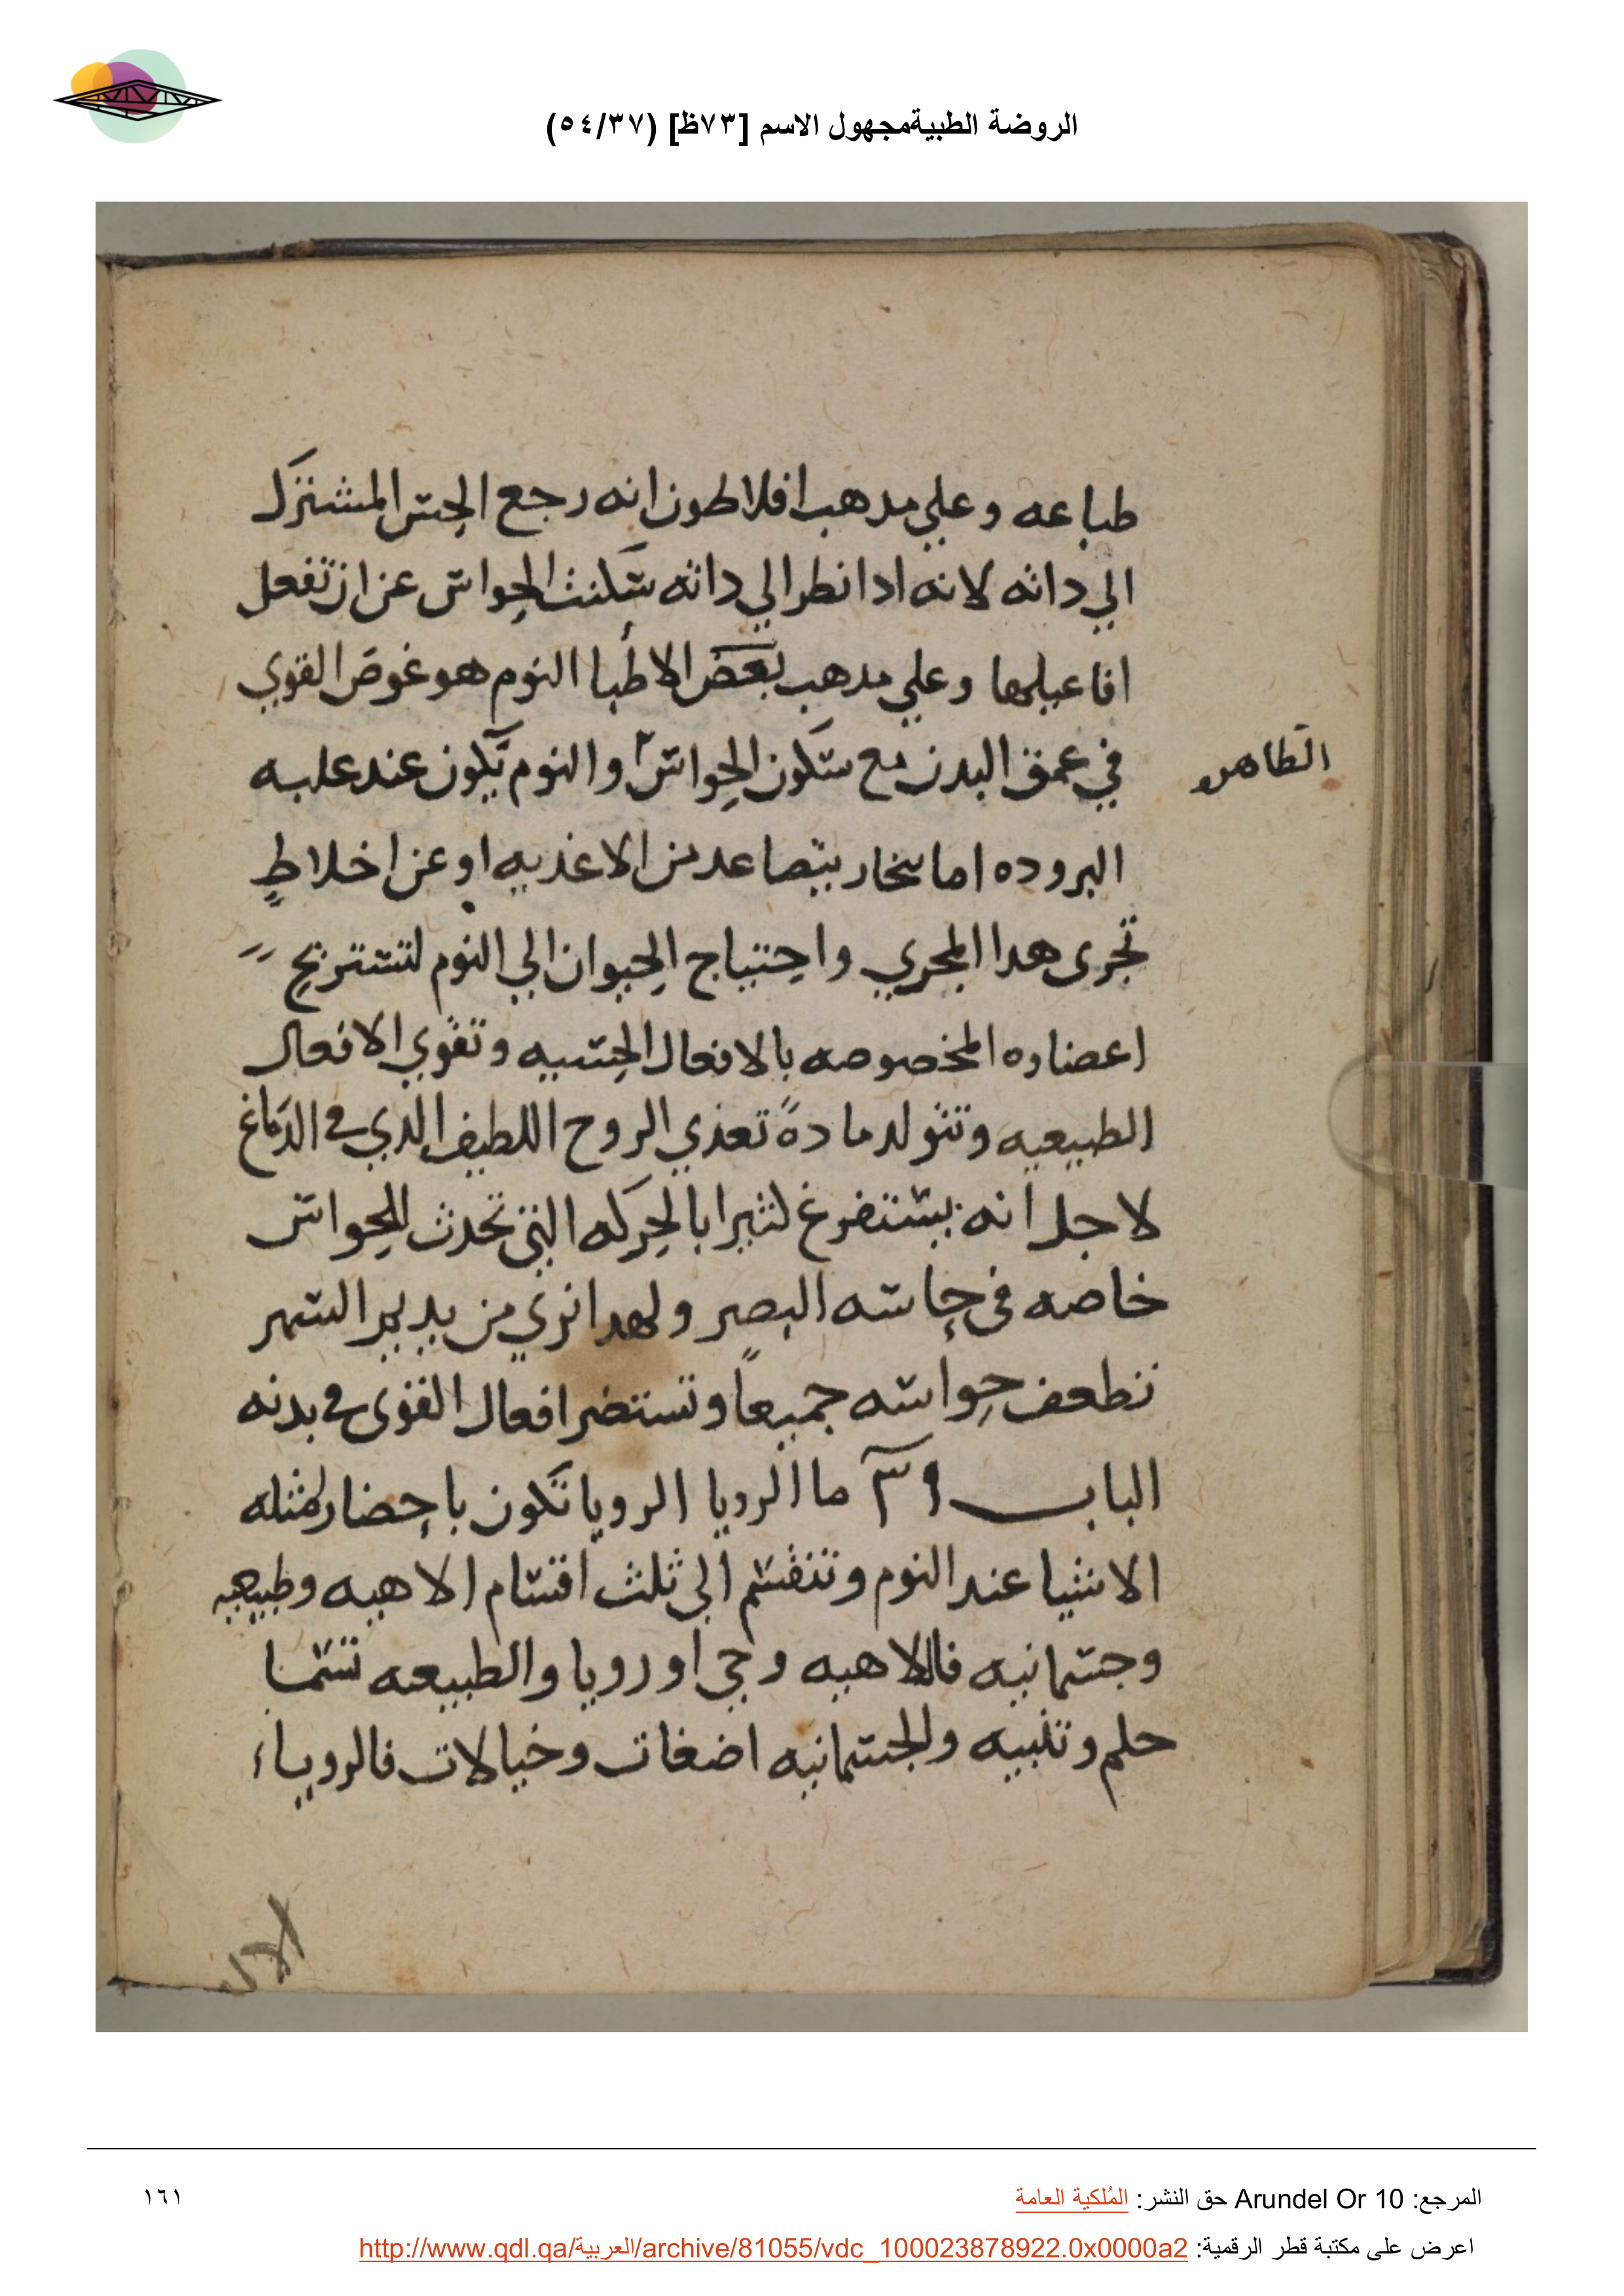 الروضة الطبيةمجهول الاسم [٧٣ظ] (٥٤/٣٧)
طباعه وعلي مدهب افلاطون انه رجع الحس المشترك
الي داته لانه ادا نطر الي داته سكنت الحواس عن ان تفعل
افاعيلها وعلي مدهب بعض الاطبا النوم هو غوص القوي
في عمق البدن مع سكون الحواس والنوم يكون عند علبه
الطاهره
البروده اما بخار يتصاعد من الاغديه او عن اخلاطٍ
تجرى هدا المجري واحتياج الحيوان الي النوم لتستريح
اعضاوه المخصوصه بالافعال الحسيه وتقوي الافعال
الطبيعيه وتتولد مادةً تعدي الروح اللطيف الدي في الدماغ
لاجل انه يستفرغ كثيرا بالحركه التي تحدث للحواس
خاصه في حاسه البصر ولهدا نري من يديم السهر
تطعف حواسه جميعاً وتستضر افعال القوى في بدنه
الباب ٣٩ ما الرويا الرويا تكون باحضار مثله
الاشيا عند النوم وتنقسم الى ثلث اقسام الاهيه وطبيعيه
وجسمانيه فالالاهيه وحي او رويا والطبيعه تسما
حلم وتنبيه والجسمانيه اضغات وخيالات فالروياء
المرجع: Arundel Or 10 حق النشر: المُلكية العامة
١٦١
اعرض على مكتبة قطر الرقمية: http://www.qdl.qa/العربية/archive/81055/vdc_100023878922.0x0000a2